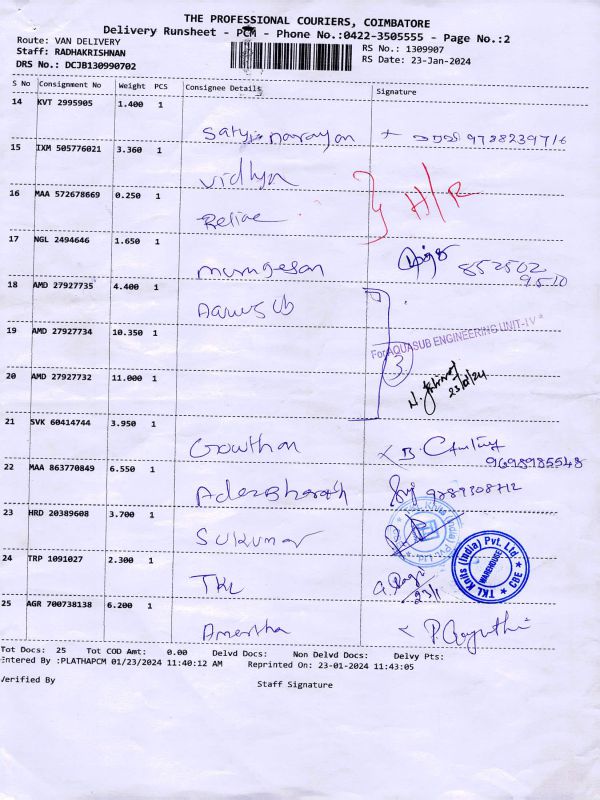 THE PROFESSIONAL COURIERS, COIMBATORE
Delivery Runsheet - PCM - Phone No.:0422-3505555 - Page No.:2
Route: VAN DELIVERY
RS No.: 1309907
Staff: RADHAKRISHNAN
RS Date: 23-Jan-2024
DRS No.: DCJB130990702
S No Consignment No Weight PCS Consignee Details Signature
14 KVT 2995905 1.400 1
Satyinarayan 9788239716
15 IXM 505776021 3.360 1
Vidhya
16 MAA 572678669 0.250 1 H/R
17 NGL 2494646 1.650 1
murugesan 852502
9510
18 AMD 27927735 4.400 1
Aarusub
19 AMD 27927734 10.350 1
For AQUASUB ENGINEERING UNIT-IV *
3
20 AMD 27927732 11.000 1
21 SVK 60414744 3.950 1
Gowtham
9698985548
22 MAA 863770849 6.550 1
9789308712
23 HRD 20389608 3.700 1
Sukumar
24 TRP 1091027 2.300 1
TKL
23/1
TKL Knits (India) Pvt. Ltd.
WAREHOUSE
* CBE *
25 AGR 700738138 6.200 1
Amertha
Tot Docs: 25 Tot COD Amt: 0.00 Delvd Docs: Non Delvd Docs: Delvy Pts:
Entered By :PLATHAPCM 01/23/2024 11:40:12 AM Reprinted On: 23-01-2024 11:43:05
Verified By
Staff Signature